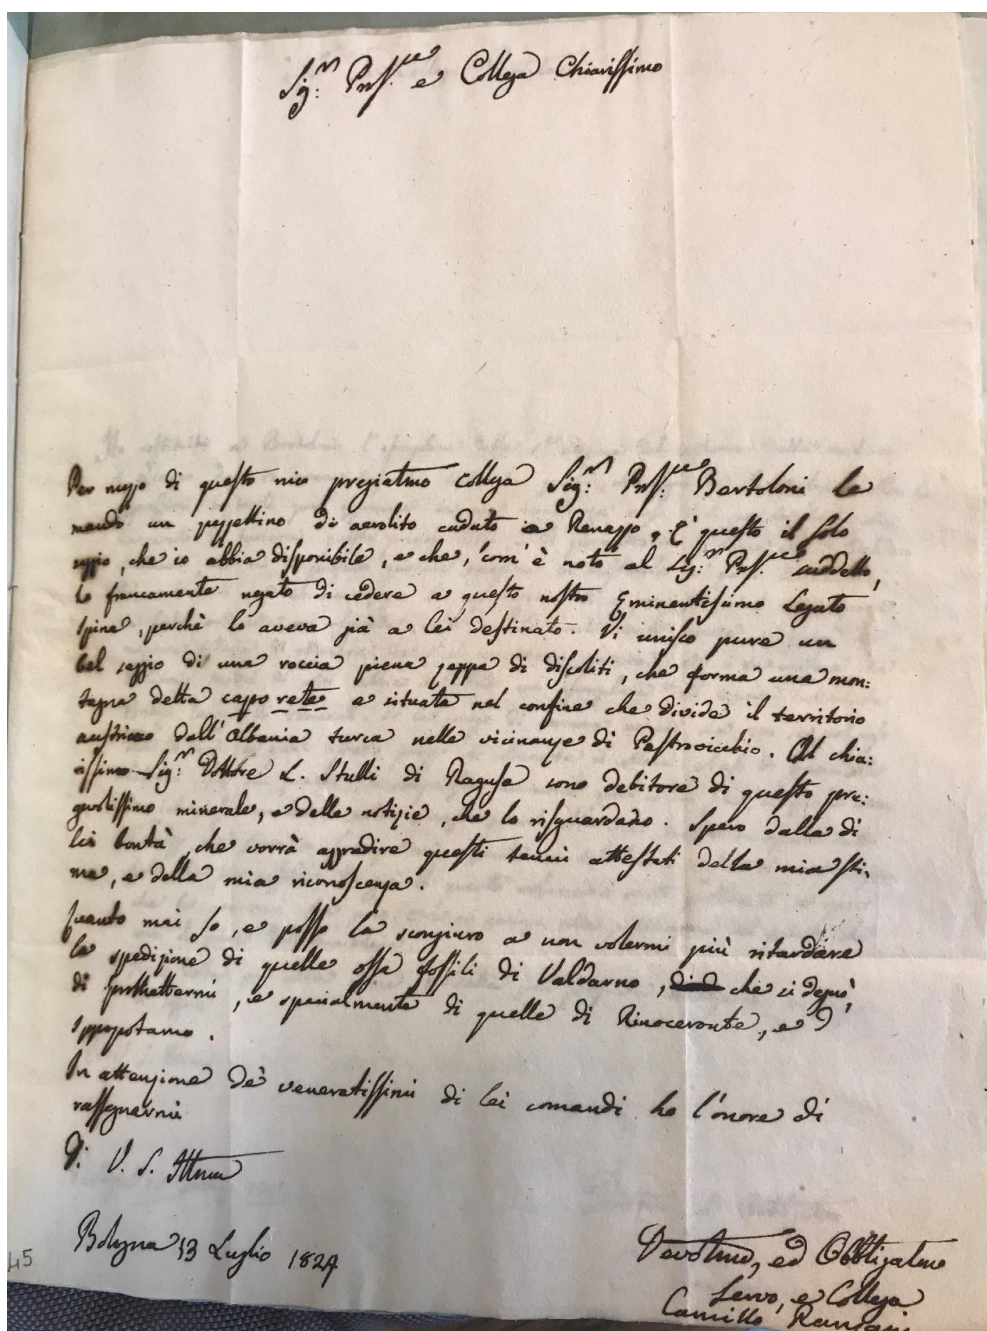 Sig:r Prof.re e Collega Chiarissimo
Per mezzo di questo mio pregiatmo Collega Sig:r Prof:re Bertoloni le
mando un pezzettino di aerolito caduto a Renazzo. E' questo il solo
saggio, che io abbia disponibile, e che, com' è noto al Sig:r Prof.re suddetto,
ho francamente negato di cedere a questo nostro Eminentissimo Legato
Spina, perchè lo aveva già a lei destinato. Vi unisco pure un
bel saggio di una roccia piena zeppa di discoliti, che forma una mon:
tagna detta capo rete e situata nel confine che divide il territorio
austriaco dall' Albania turca nelle vicinanze di Pastrovicchio. Al chia:
rissimo Sig:r Dottore L. Stulli di Ragusa sono debitore di questo pre:
giatissimo minerale, e delle notizie, che lo risguardano. Spero dalla di
lei bontà, che vorrà aggradire questi tenui attestati della mia sti:
ma, e della mia riconoscenza.
Quanto mai so, e posso la scongiuro a non volermi più ritardare
la spedizione di quelle ossa fossili di Valdarno, che si degnò
di promettermi, e specialmente di quelle di Rinoceronte, e d'
Ippopotamo.
In attenzione de' veneratissimi di lei comandi ho l'onore di
rassegnarmi
Di V. S. Illma
Bologna 13 Luglio 1824
Devotmo, ed Obbligatmo
Servo, e Collega
Camillo Ranzani
45